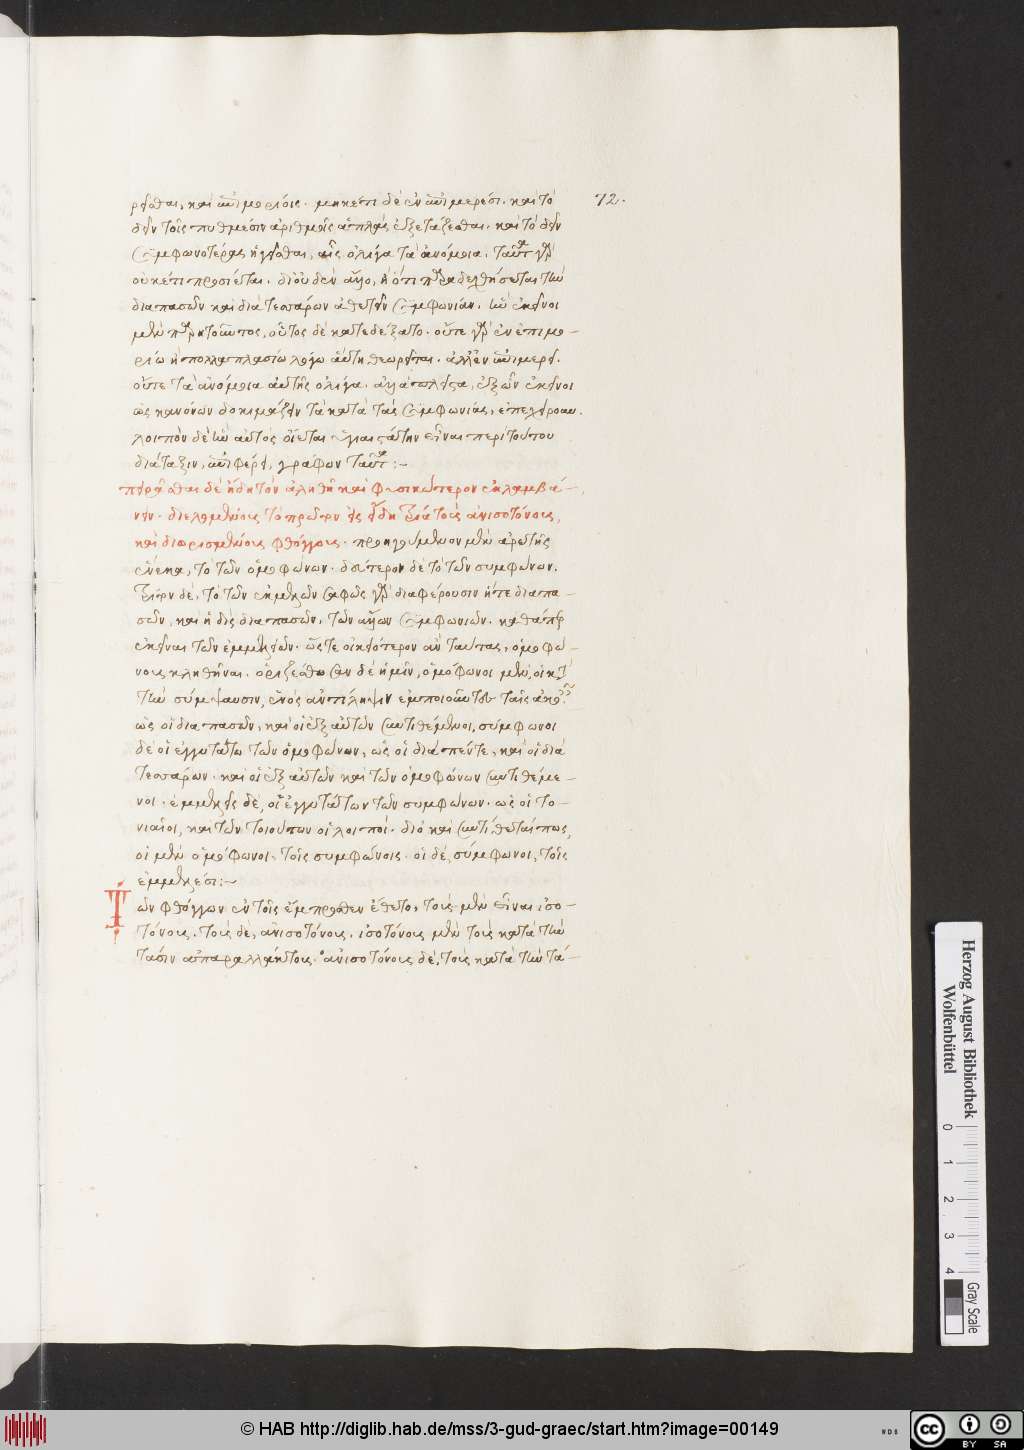 ρεῖσθαι, καὶ ἐπιμορίοις. μηκέτι δὲ ἐν ἐπιμερέσι. καὶ τὸ
72.
δεῖν τοῖς πυθμέσιν ἀριθμοῖς ἁπλῶς ἐξετάζεσθαι. καὶ τὸ δεῖν
συμφωνοτέρας ἡγεῖσθαι, αἷς ὀλίγα τὰ ἀνόμοια. ταῦτα γὰρ
οὐκέτι προσίεται. διὸ οὐδὲν ἄλλο, ἢ ὅτι παραδεχθήσεται τὴν
διαπασῶν καὶ διατεσσάρων ἀθετεῖν συμφωνίαν. ἣν ἐκεῖνοι
μὲν παρῃτοῦντος, οὗτος δὲ κατεδέξατο. οὔτε γὰρ ἐν ἐπιμο-
ρίῳ ἢ πολλαπλασίῳ λόγῳ αὕτη θεωρεῖται. ἀλλ' ἐν ἐπιμερεῖ.
οὔτε τὰ ἀνόμοια αὐτῆς ὀλίγα. ἀλλὰ πλεῖστα, ἐξ ὧν ἐκεῖνοι
ὡς κανόνων δοκιμάζειν τὰ κατὰ τὰς συμφωνίας, ἐπεχείρουν.
λοιπὸν δὲ ἣν αὐτὸς οἴεται ὑγιεστάτην εἶναι περὶ τούτου
διάταξιν, ἐπιφέρει, γράφων ταῦτα:-
πειρᾶσθαι δὲ ἤδη τὸν ἀληθῆ καὶ φυσικώτερον ἐκλαμβά-
νειν. διελομένοις τὸ πρῶτον εἰς εἴδη τρία τοὺς ἀνισοτόνους,
καὶ διωρισμένους φθόγγους. προηγούμενον μὲν ἀρετῆς
ἕνεκα, τὸ τῶν ὁμοφώνων. δεύτερον δὲ τὸ τῶν συμφώνων.
τρίτον δὲ, τὸ τῶν ἐμμελῶν. σαφῶς γὰρ διαφέρουσιν ἥ τε διαπα-
σῶν, καὶ ἡ δὶς διαπασῶν, τῶν ἄλλων συμφωνιῶν. καθάπερ
ἐκεῖναι τῶν ἐμμελειῶν. ὥστε οἰκειότερον ἂν ταύτας, ὁμοφώ-
νους κληθῆναι. ὁρίζεσθωσαν δὲ ἡμῖν, ὁμόφωνοι μὲν, οἱ κατὰ
τὴν σύμψαυσιν, ἑνὸς ἀντίληψιν ἐμποιοῦντες ταῖς ἀκοαῖς
ὡς οἱ διαπασῶν, καὶ οἱ ἐξ αὐτῶν συντιθέμενοι, σύμφωνοι
δὲ οἱ ἐγγυτάτω τῶν ὁμοφώνων, ὡς οἱ διαπέντε, καὶ οἱ διὰ
τεσσάρων. καὶ οἱ ἐξ αὐτῶν καὶ τῶν ὁμοφώνων συντιθέμε-
νοι. ἐμμελεῖς δὲ, οἱ ἐγγυτάτω τῶν συμφώνων. ὡς οἱ το-
νιαῖοι, καὶ τῶν τοιούτων οἱ λοιποί. διὸ καὶ συντίθενταί πως,
οἱ μὲν ὁμόφωνοι, τοῖς συμφώνοις. οἱ δὲ σύμφωνοι, τοῖς
ἐμμελέσι:-
Τῶν φθόγγων ἐν τοῖς ἔμπροσθεν ἔθετο, τοὺς μὲν εἶναι ἰσο-
τόνους, τοὺς δὲ, ἀνισοτόνους. ἰσοτόνους μὲν τοὺς κατὰ τὴν
τάσιν ἀπαραλλάκτους. ἀνισοτόνους δὲ, τοὺς κατὰ τὴν τά-
Herzog August Bibliothek
Wolfenbüttel
0 1 2 3 4
Gray Scale
© HAB http://diglib.hab.de/mss/3-gud-graec/start.htm?image=00149
WDB
cc BY SA